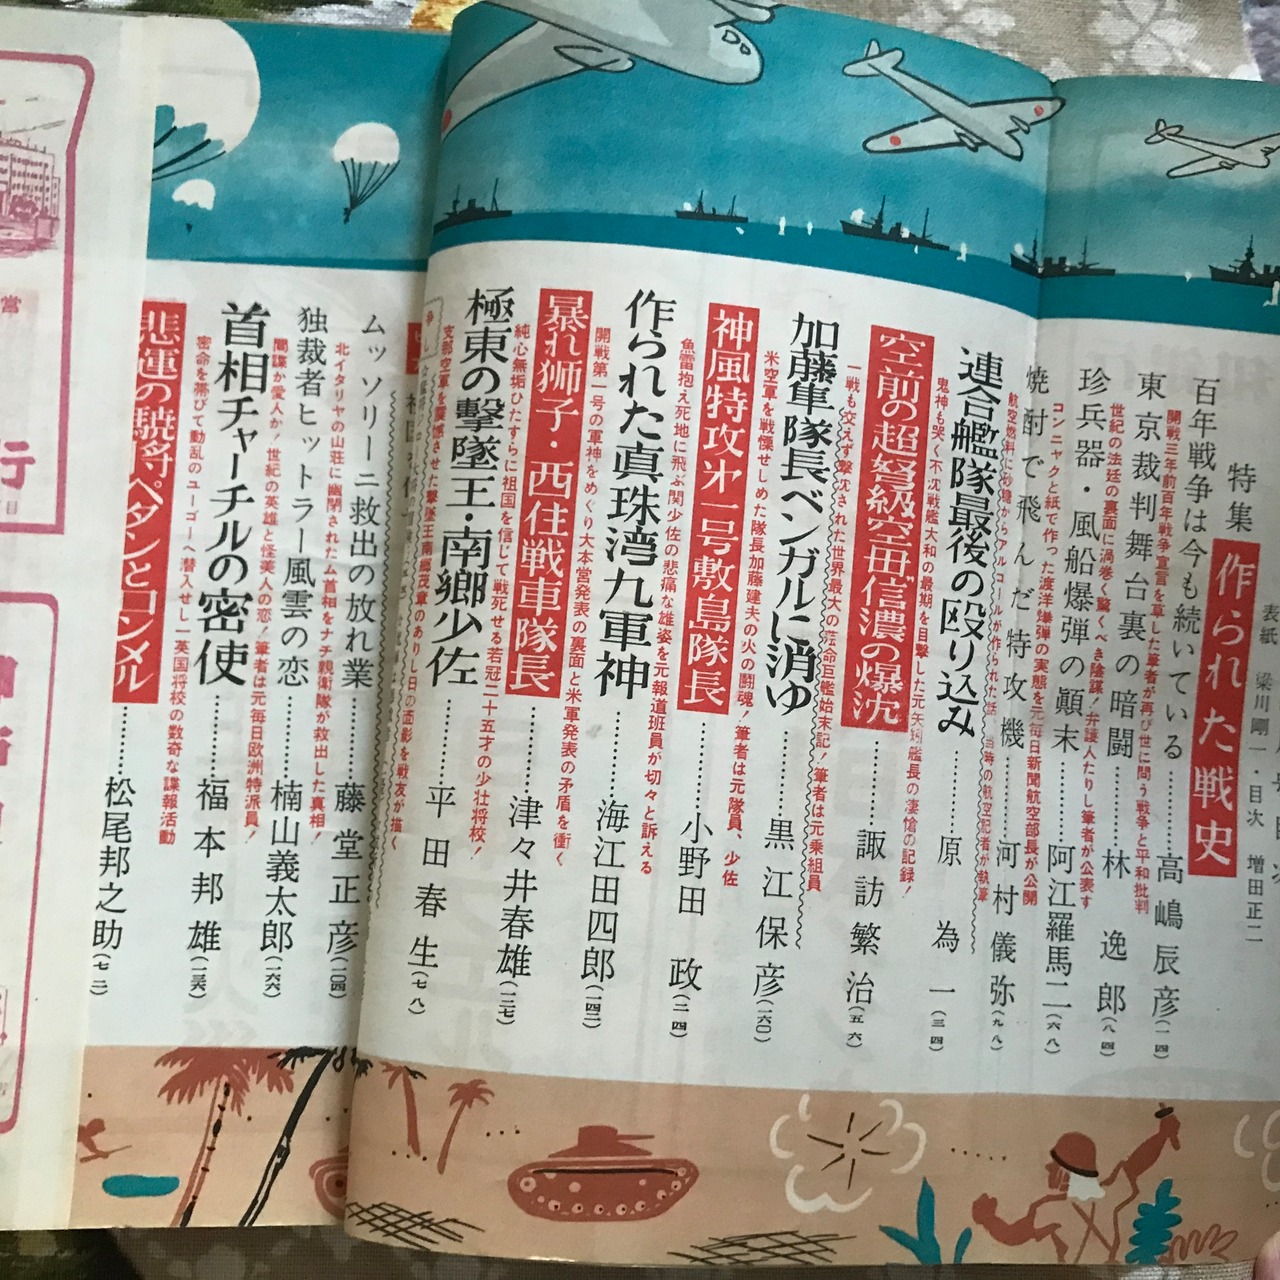 表紙 梁川剛一・目次 増田正二
特集 作られた戦史
百年戦争は今も続いている………高嶋辰彦(一四)
開戦三年前百年戦争宣言を草した筆者が再び世に問う戦争と平和批判
東京裁判舞台裏の暗闘………林逸郎(八四)
世紀の法廷の裏面に渦巻く驚くべき陰謀!弁護人たりし筆者が公表す
珍兵器・風船爆弾の顚末………阿江羅馬二(六八)
コンニャクと紙で作った渡洋爆弾の実態を元毎日新聞航空部長が公開
焼酎で飛んだ特攻機………河村儀弥(九八)
航空燃料に砂糖からアルコールが作られた話 当時の航空記者が執筆
連合艦隊最後の殴り込み………原為一(三四)
鬼神も哭く不沈戦艦大和の最期を目撃した元矢矧艦長の凄愴の記録!
空前の超弩級空母“信濃の爆沈………諏訪繁治(五六)
一戦も交えず撃沈された世界最大の巨艦始末記!筆者は元乗組員
加藤隼隊長ベンガルに消ゆ………黒江保彦(一六〇)
米空軍を戦慄せしめた隊長加藤建夫の火の闘魂!筆者は元隊員、少佐
神風特攻第一号敷島隊長………小野田政(二四)
魚雷抱え死地に飛ぶ関少佐の悲痛な雄姿を元報道班員が切々と訴える
作られた真珠湾九軍神………海江田四郎(一四二)
開戦第一号の軍神をめぐり大本営発表の裏面と米軍発表の矛盾を衝く
暴れ獅子・西住戦車隊長………津々井春雄(一二七)
純心無垢ひたすらに祖国を信じて戦死せる若冠二十五才の少壮将校!
極東の撃墜王・南郷少佐………平田春生(七八)
支那空軍を震憾させた撃墜王南郷茂章のありし日の面影を戦友が描く
ムッソリーニ救出の放れ業………藤堂正彦(二〇四)
北イタリヤの山荘に幽閉されたム首相をナチ親衛隊が救出した真相!
独裁者ヒットラー風雲の恋………楠山義太郎(一六六)
間諜か愛人か!世紀の英雄と怪美人の恋!筆者は元毎日欧洲特派員!
首相チャーチルの密使………福本邦雄(一三六)
密命を帯びて動乱のユーゴーへ潜入せし一英国将校の数奇な諜報活動
悲運の驍将ペタンとロンメル………松尾邦之助(七二)
営
行